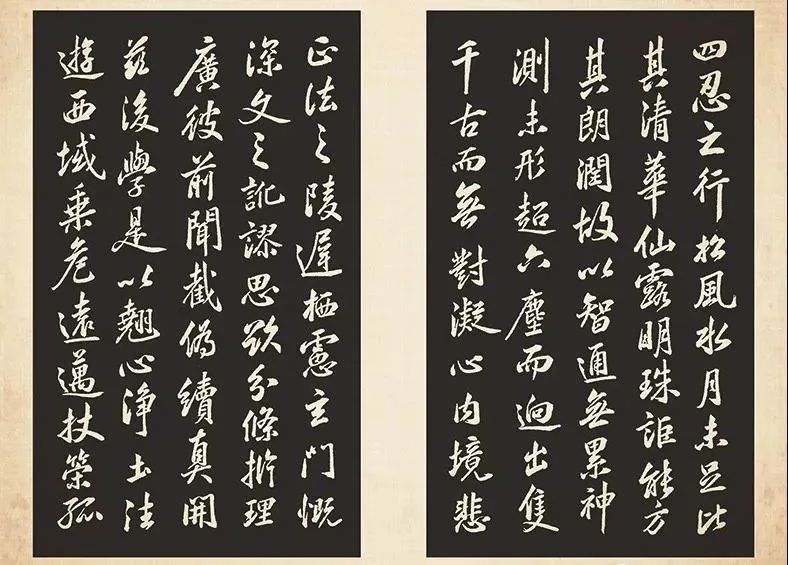 四忍之行松風水月未足比
其清華仙露明珠詎能方
其朗潤故以智通無累神
測未形超六塵而迥出隻
千古而無對凝心內境悲
正法之陵遲栖慮玄門慨
深文之訛謬思欲分條析理
廣彼前聞截偽續真開
茲後學是以翹心淨土法
遊西域乘危遠邁杖策孤